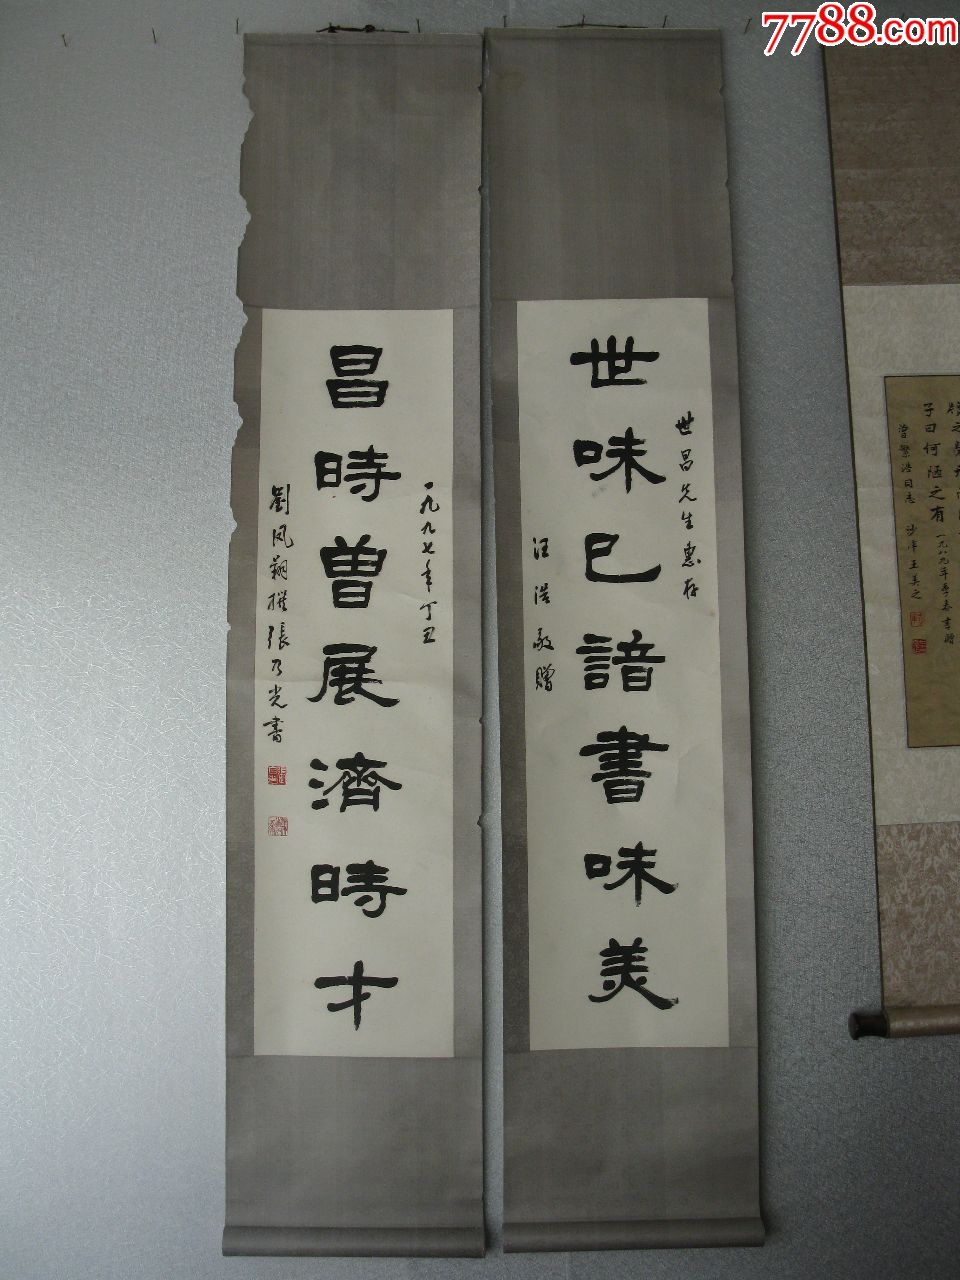 7788.com
世味已諳書味美
世昌先生惠存
汪浩敬贈
昌時曾展濟時才
一九九七年丁丑
劉鳳翔撰張乃光書
子曰何陋之有
一九八九年季春書贈
曾繁浩同志
王美之